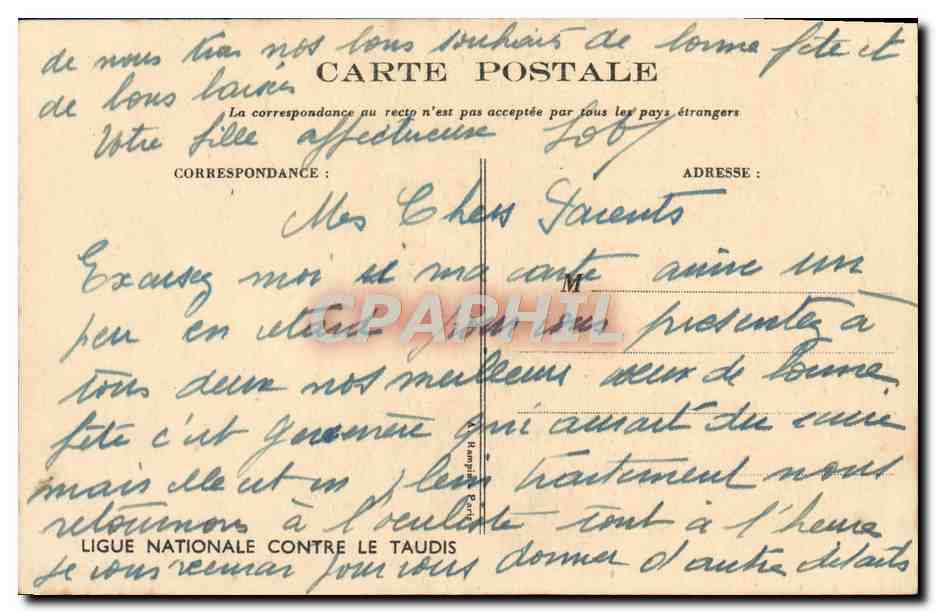 de nous tous nos bons souhaits de bonne fête et
CARTE POSTALE
de bons baisers
La correspondance au recto n'est pas acceptée par tous les pays étrangers
Votre fille affectueuse
CORRESPONDANCE :
ADRESSE :
Mes Chers Parents
Excusez moi si ma carte arrive un
M
peu en retard pour vous presentez à
CPAPHIL
tous deux nos meilleurs voeux de bonne
fête c'est qui aurait du ecrire
A. Rampin Paris
mais elle est en plein traitement nous
retournons à l'oculiste tout à l'heure
LIGUE NATIONALE CONTRE LE TAUDIS
je vous pour vous donner d'autre details